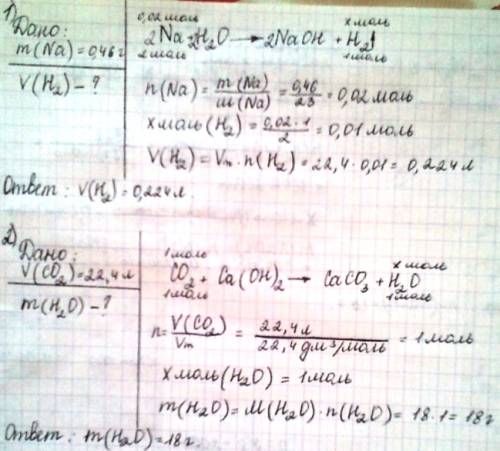 1) Дано:
m(Na) = 0,46 г
V(H₂) - ?
0,02 моль x моль
2Na + 2H₂O → 2NaOH + H₂↑
2 моль 1 моль
n(Na) = m(Na) / M(Na) = 0,46 / 23 = 0,02 моль
x моль (H₂) = 0,02 · 1 / 2 = 0,01 моль
V(H₂) = Vm · n(H₂) = 22,4 · 0,01 = 0,224 л
Ответ: V(H₂) = 0,224 л.
2) Дано:
V(CO₂) = 22,4 л
m(H₂O) - ?
1 моль x моль
CO₂ + Ca(OH)₂ → CaCO₃ + H₂O
1 моль 1 моль
n = V(CO₂) / Vm = 22,4 л / 22,4 дм³/моль = 1 моль
x моль (H₂O) = 1 моль
m(H₂O) = M(H₂O) · n(H₂O) = 18 · 1 = 18 г
Ответ: m(H₂O) = 18 г.